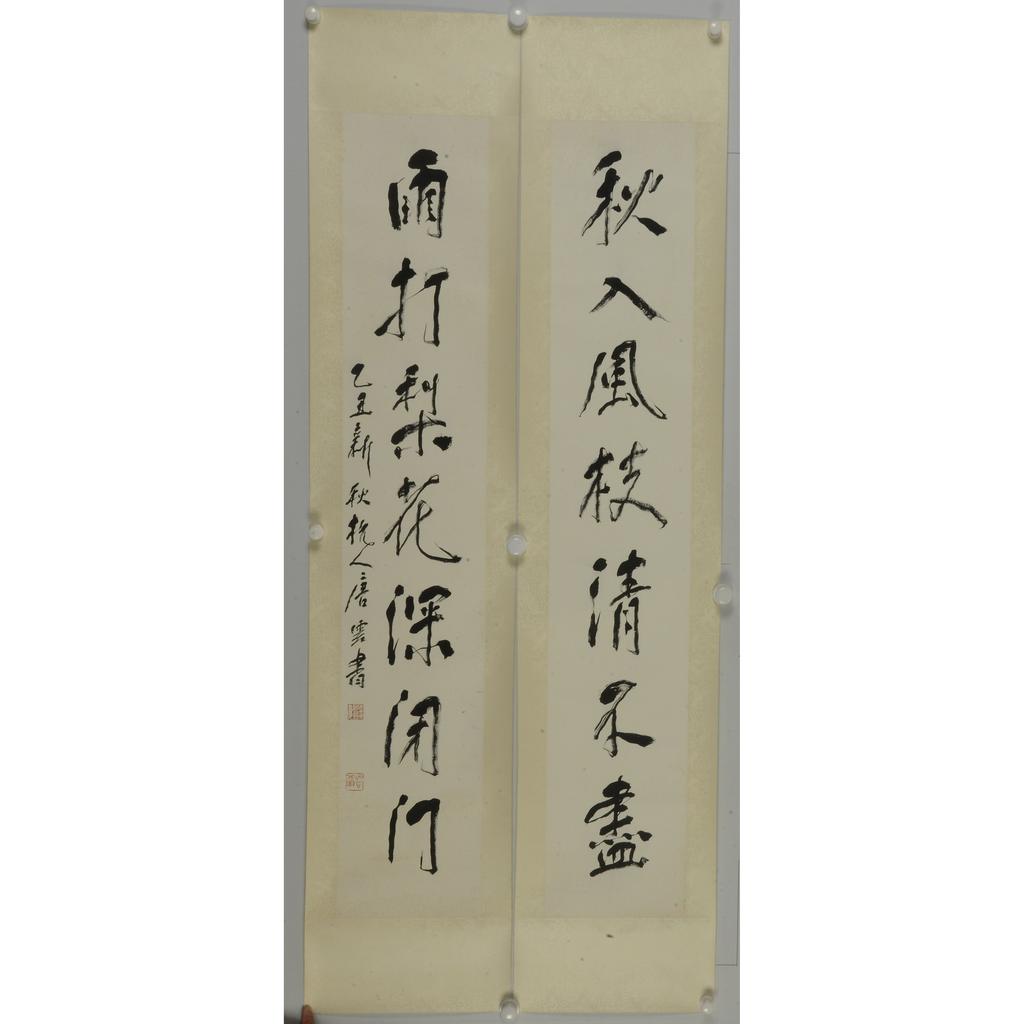 秋入風枝清不盡
雨打梨花深閉門
乙丑新秋杭人唐雲書